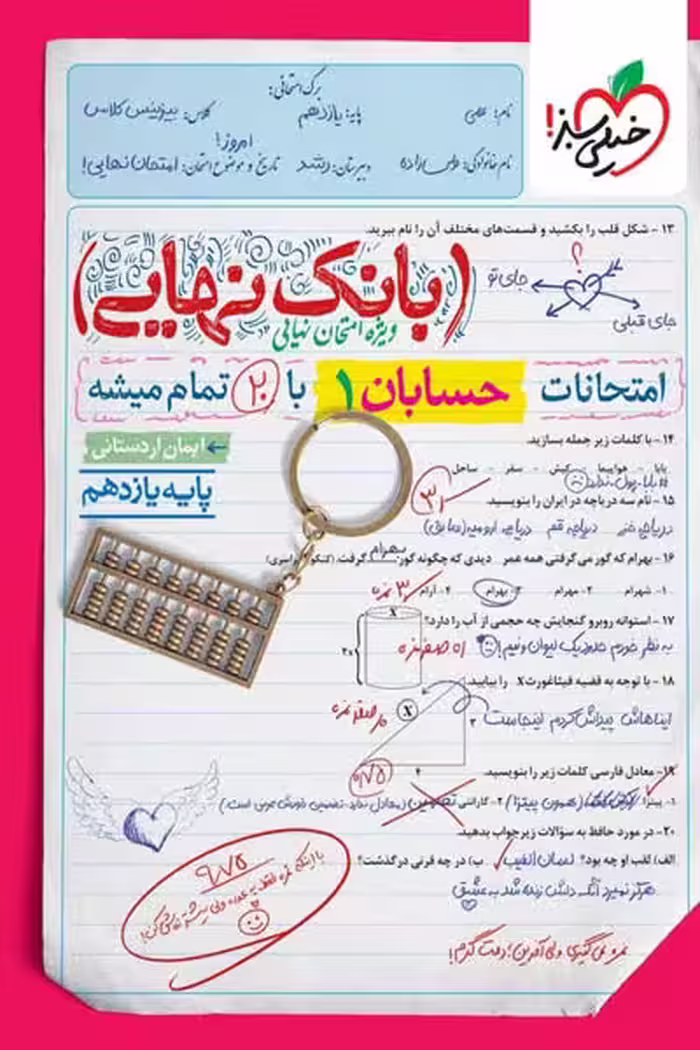 خیلی سبز!
برگ امتحانی:
نام: علی پایه: یازدهم کلاس: بیزینس کلاس
امروز!
نام خانوادگی: دبیرستان: رشد تاریخ و موضوع امتحان: امتحان نهایی!
۱۳ - شکل قلب را بکشید و قسمت‌های مختلف آن را نام ببرید.
؟
جای تو
جای قبلی
(بانک نهایی)
ویژه امتحان نهایی
امتحانات حسابان ۱ با ۲۰ تمام میشه
ایمان اردستانی
پایه یازدهم
۱۴ - با کلمات زیر جمله بسازید.
بابا - هواپیما - کیش - سفر - ساحل
# بابا پول ندارد
۱۵ - نام سه دریاچه در ایران را بنویسید.
۳
دریاچه خزر دریاچه قم دریاچه ارومیه (سابق)
۱۶ - بهرام که گور می‌گرفتی همه عمر دیدی که چگونه گور بهرام گرفت. (کنکور سراسری)
۱- شهرام ۲- مهرام ۳- بهرام ۴- آرام ۳ نمره
۱۷ - استوانه روبرو گنجایش چه حجمی از آب را دارد؟
x
۲x
به نظر خودم حدود یک لیوان و نیم! صفر نمره
۱۸ - با توجه به قضیه فیثاغورث X را بیابید.
ایناهاش پیداش کردم اینجاست
X
۳
۴
صفر نمره
۰/۷۵
۱۹ - معادل فارسی کلمات زیر را بنویسید.
۱- پیتزا (همون پیتزا) ۲- گارانتی تضمین (معادل ندارد تضمین خودش عربی است.)
۲۰ - در مورد حافظ به سؤالات زیر جواب بدهید.
الف) لقب او چه بود؟ لسان الغیب ب) در چه قرنی درگذشت؟
هرگز نمیرد آنکه دلش زنده شد به عشق
۹/۷۵
نمره نمی‌گیری ولی آفرین؛ دمت گرم!